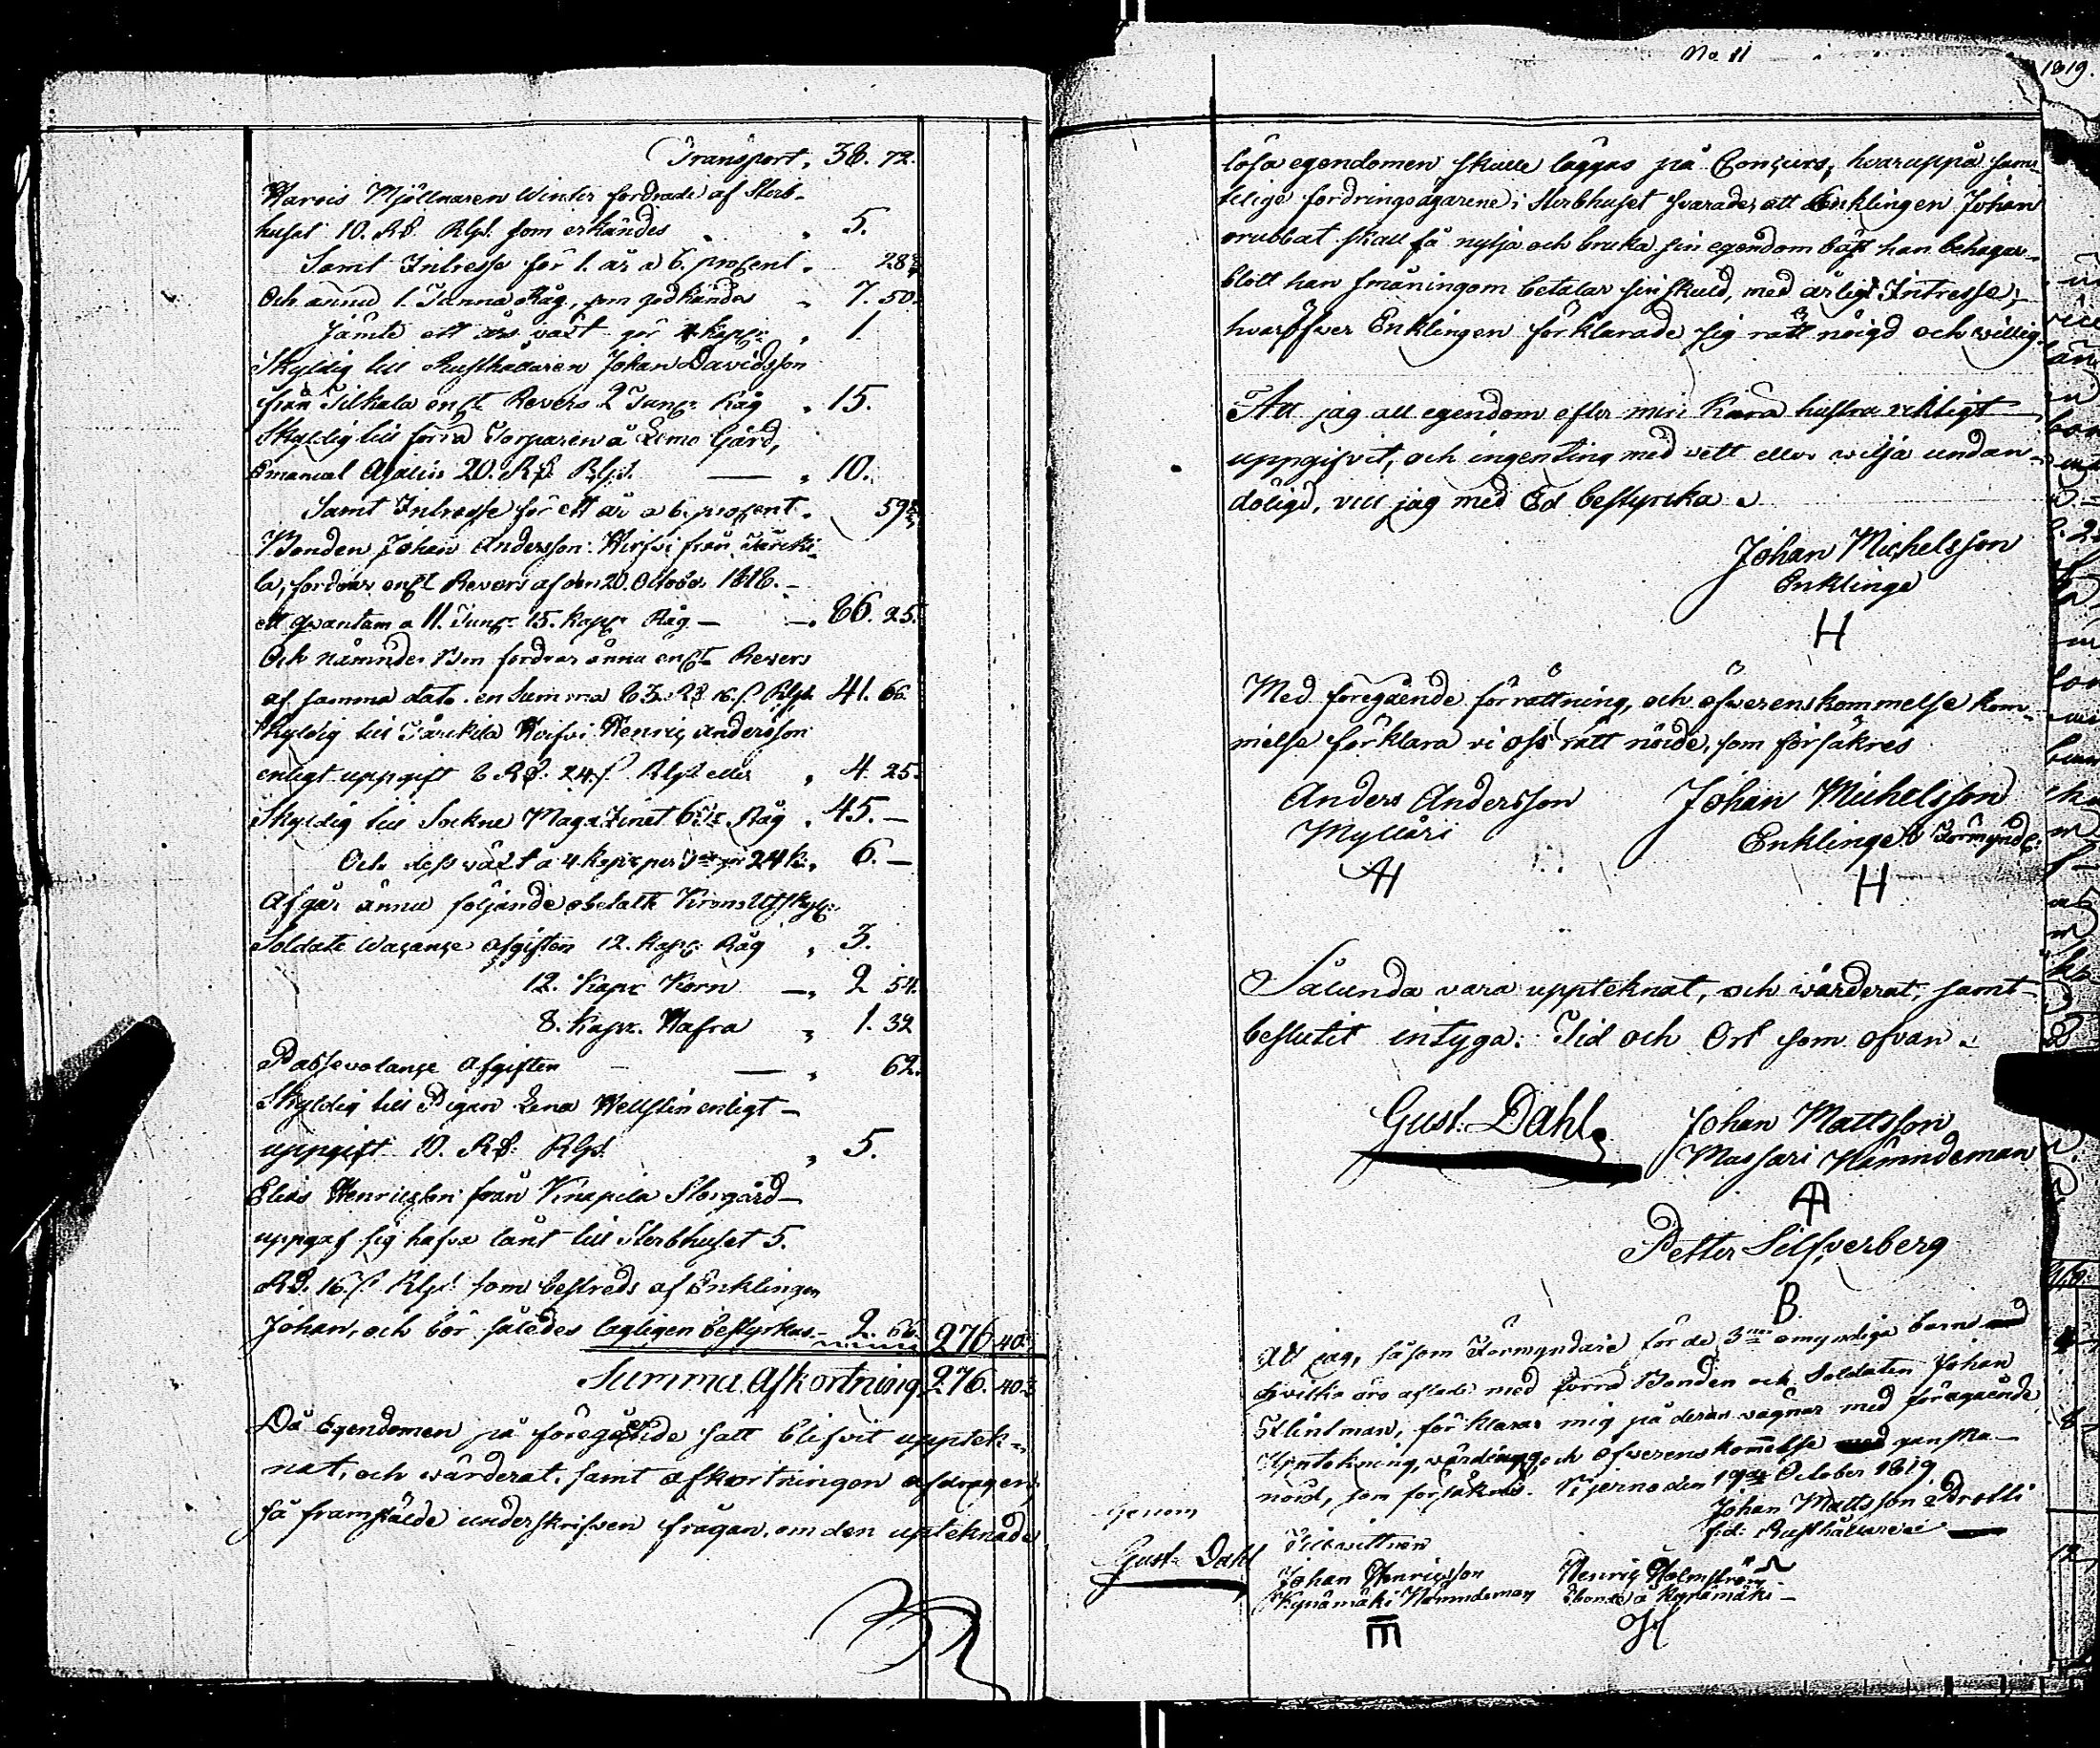 Transport „ 38. 72.
Harvis Mjöllnaren Winter fordrade af Sterb-
huset 10. RD. Rgs. som erkändes „ 5.
Samt Intresse för 1. år a 6. procent „ 28
Och ännu 1. Tunna Råg, som godkändes „ 7. 50.
Jämte ett års växt gör 4 kapp: „ 1
Skyldig till Rusthållaren Johan Davidsson
från Tilkala enl:t Revers 2 Tun:r Råg „ 15.
Skyldig till förra Torparen å Lemo Gård,
Emanuel 20. RD. Rgs. — „ 10.
Samt Intresse för ett år a 6. procent „ 59
Bonden Johan Andersson Hirfvi från Järcki-
la, fordrar enl:t Revers af den 20. October 1818. –
ett qvantum a 11. Tun:r 15. kapp:r Råg – „ 86. 25.
Och nämnde Bon fordrar ännu enl:t Revers
af samma dato en Summa 83. RD. 16. s. Rgs. 41. 66
Skyldig till Järckila Hirfvi Henric Andersson
enligt uppgift 8 RD. 24. s. Rgs. eller „ 4. 25.
Skyldig till Sockne Magazinet 6 T:r Råg „ 45. –
Och dess växt a 4. kapp:r per T:na gör 24 k: „ 6. –
Afgår ännu följande obetalte Krono Utskyl:
Soldate Vacance afgiften 12. kapp: Råg „ 3.
12. Kapp: Korn — „ 2 54.
8. kapp:r Hafra „ 1. 32
Passevolance Afgiften — „ 62.
Skyldig till Pigan Lena Hellsten enligt –
uppgift 10. RD. Rgs. „ 5.
Elias Henricsson från Knapila Storgård –
uppgaf sig hafva lånt till Sterbhuset 5.
RD. 16. s. Rgs. som bestreds af Enklingen
Johan, och bör således lagligen bestyrkas. – 2. 66. 276. 40.
Summa Afkortning 276. 40.
Då Egendomen på föregående sätt blifvit uptek-
nat, och wärderat, samt afkortningen afdragen,
så framstälde underskrifven frågan, om den upteknade
No. 11
1819.
lösa egendomen skulle läggas på Concurs, hvaruppå sam-
telige fordringsägarene i Sterbhuset svarade, att Enklingen Johan
orubbat skall få nyttja och bruka sin egendom bäst han behagar
blott han småningom betalar sin skuld, med årligt Intresse;
hvaröfver Enklingen förklarade sig rätt nöigd och villig.
Att jag all egendom efter min Kära hustru riktigt
uppgifvit, och ingenting med vett eller vilja undan-
döligd, vill jag med Ed bestyrcka.
Johan Michelsson
Enklinge
H
Med föregående förrättning, och öfverenskommelse kom-
melse förklara vi oss rätt nöide, som försäkres
Anders Andersson Johan Michelsson
Mylläri Enklinge & Förmynd:
AH H
Sålunda vara uppteknat, och wärderat, samt
beslutit intyga: Tid och Ort som ofvan.
Gust. Dahl Johan Mattsson
Massari Nämndeman
A
Petter Silfverberg
B.
Att jag, såsom Förmyndare för de 3:ne omyndiga barn
hvilka äro aflade med förra Bonden och Soldaten Johan
Flintman, förklarar mig på deras vägnar med föregående
Uptekning, värdering, och öfverenskommelse ganska
nöid, som försäkras. Vijerno den 19:de October 1819.
Johan Mattsson Prolli
f.d. Rusthållare
Genom
Gust. Dahl
Till vittnen
Johan Henricsson Henric Holmström
Kynämäki Nämndeman Bonde å Kynämäki –